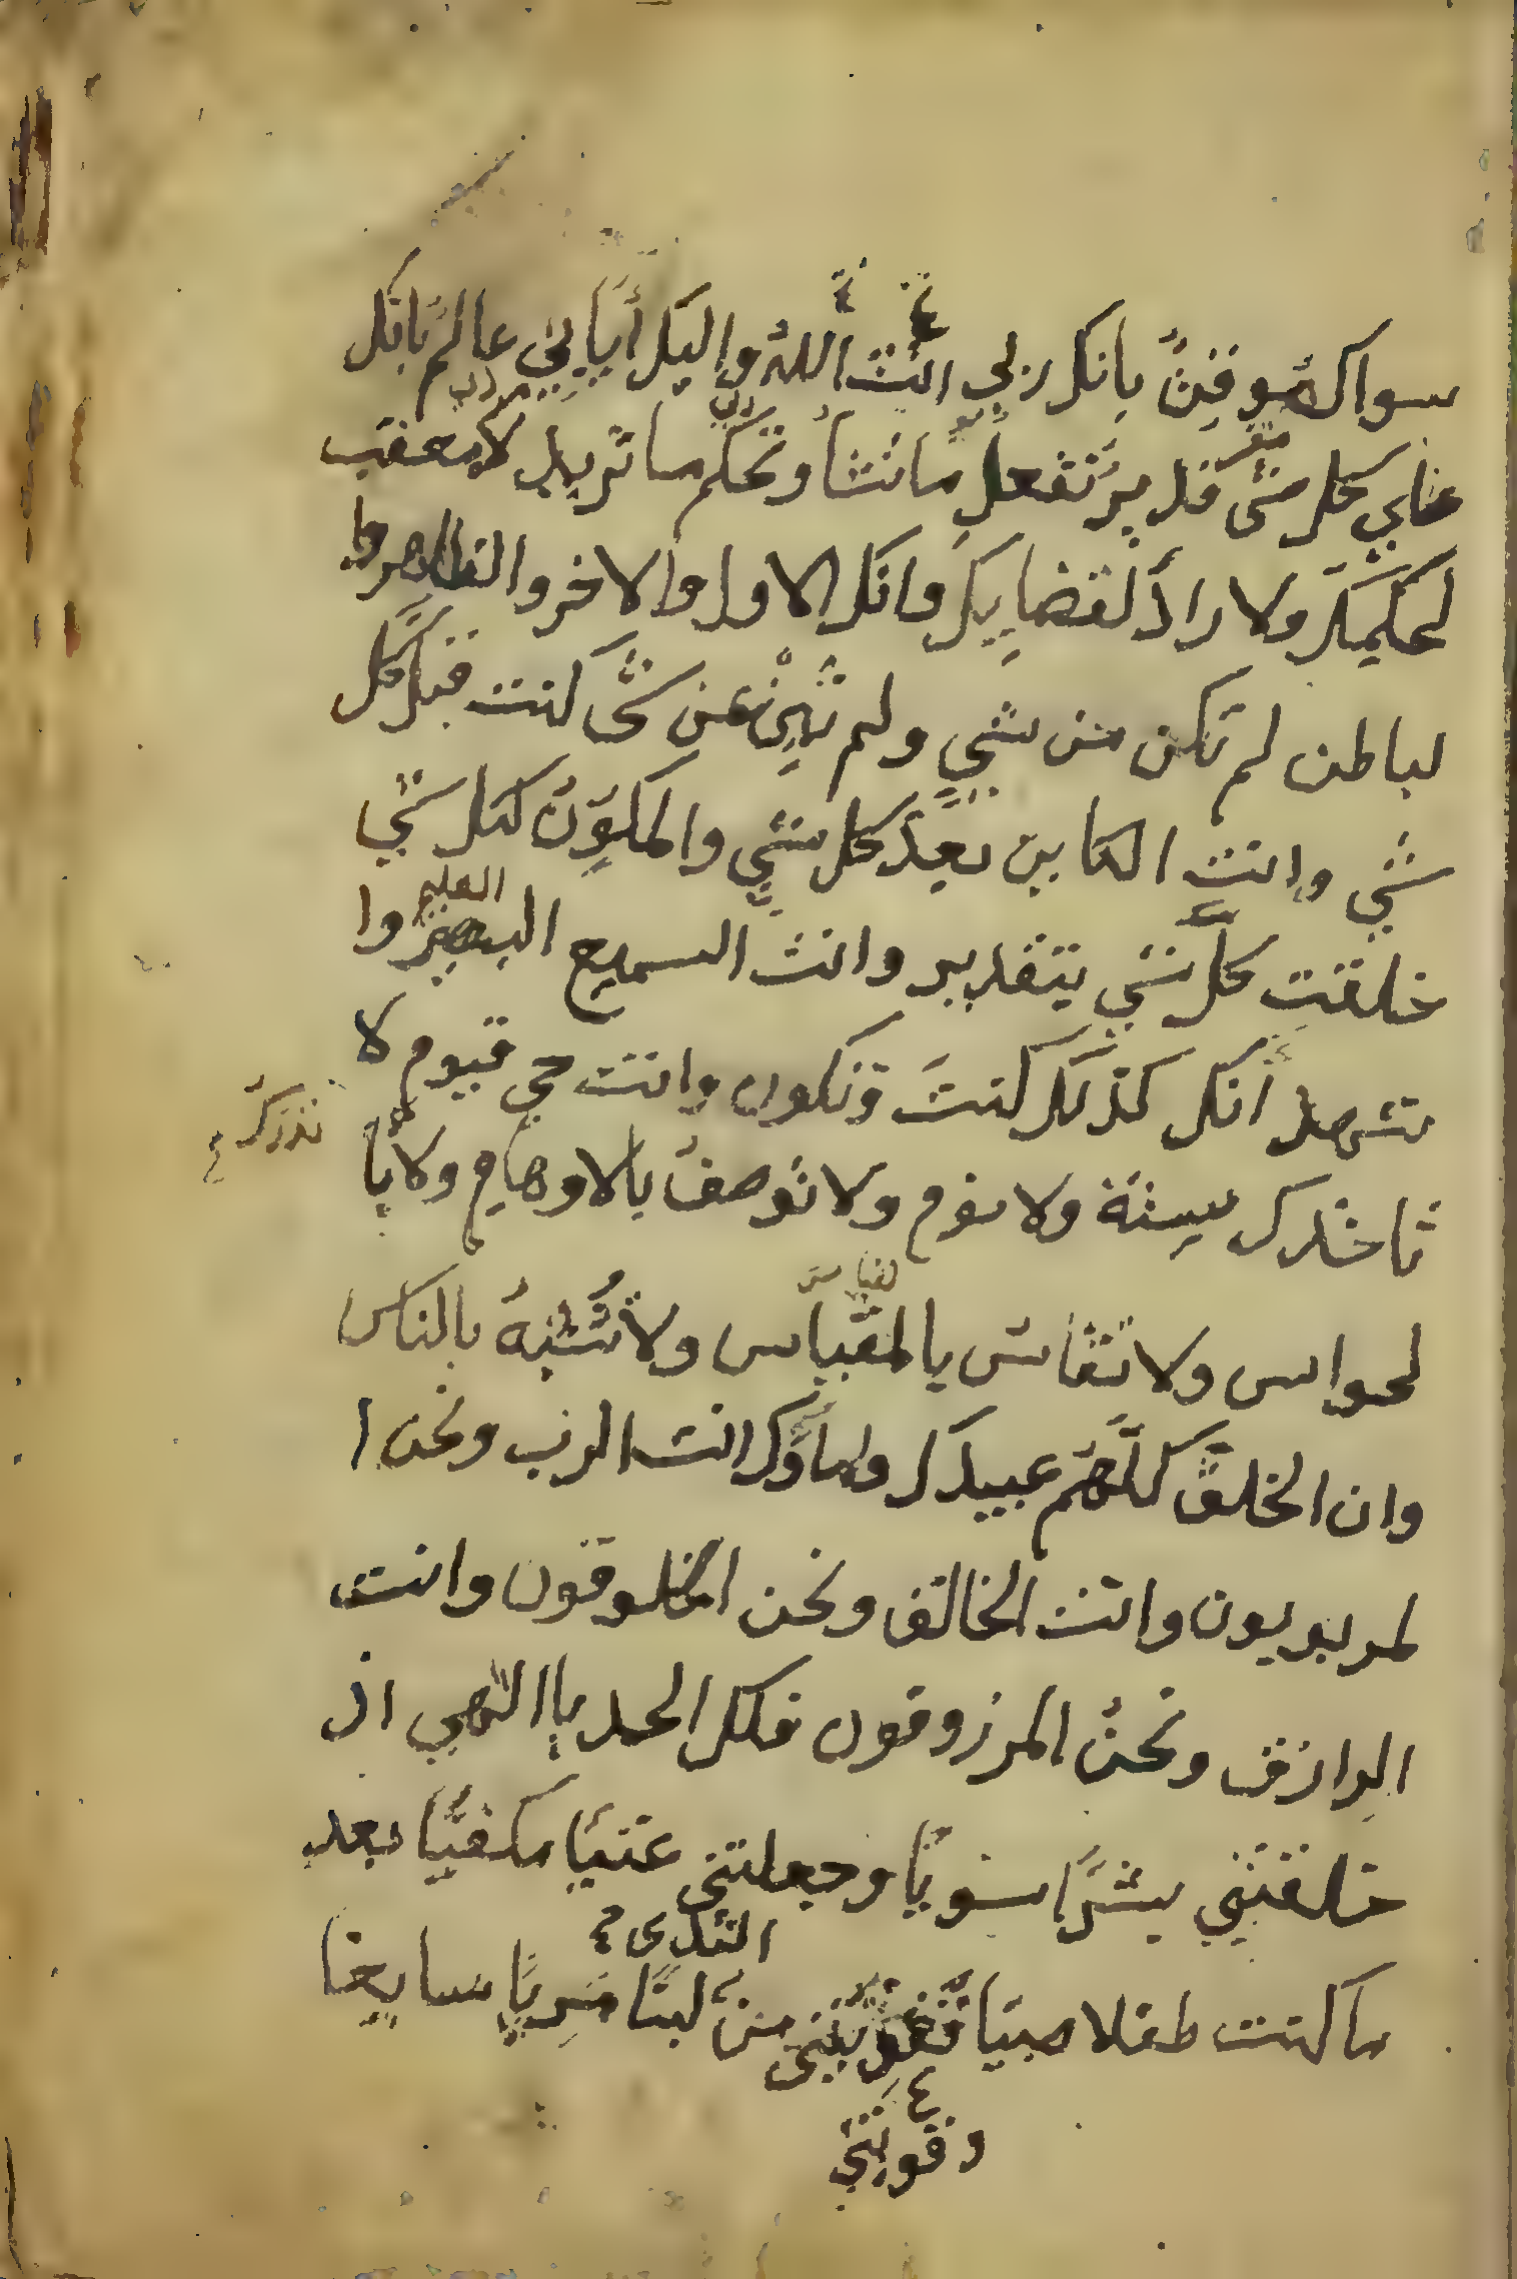 سواك موقنٌ بانك ربي انت الله واليك أيابي عالمٌ بانك
علي كل شي قدير تفعل ما تشأ وتحكم ما تريد لا معقب
لحكمك ولا رادّ لقضايك وانك الاول والاخر والظاهر وا
لباطن لم تكن من شيٍ ولم تَبِنْ عن شي كنت قبل كل
شي وانت الكاين بعد كل شي والمكوِّن لكل شي
العليم
خلقت كل شي بتقدير وانت السميع البصير وا
شهد أنك كذلك كنت وتكون وانت حي قيوم لا
تدرك
تاخذك سِنة ولا نوم ولا توصف بالاوهام ولا با
لقياس
لحواس ولا تقاس بالمقياس ولا تُشبهُ بالناس
وان الخلق كلهم عبيدك واماؤك انت الرب ونحن ا
لمربوبون وانت الخالق ونحن المخلوقون وانت
الرازق ونحن المرزوقون فلك الحمد يا الهي اذ
خلقتني بشرًا سويًا وجعلتني غنيًا مكفيًّا بعد
الثدى
ما كنت طفلا صبيًا تقوتني من لبنًا مريًا سايغا
وقوتني